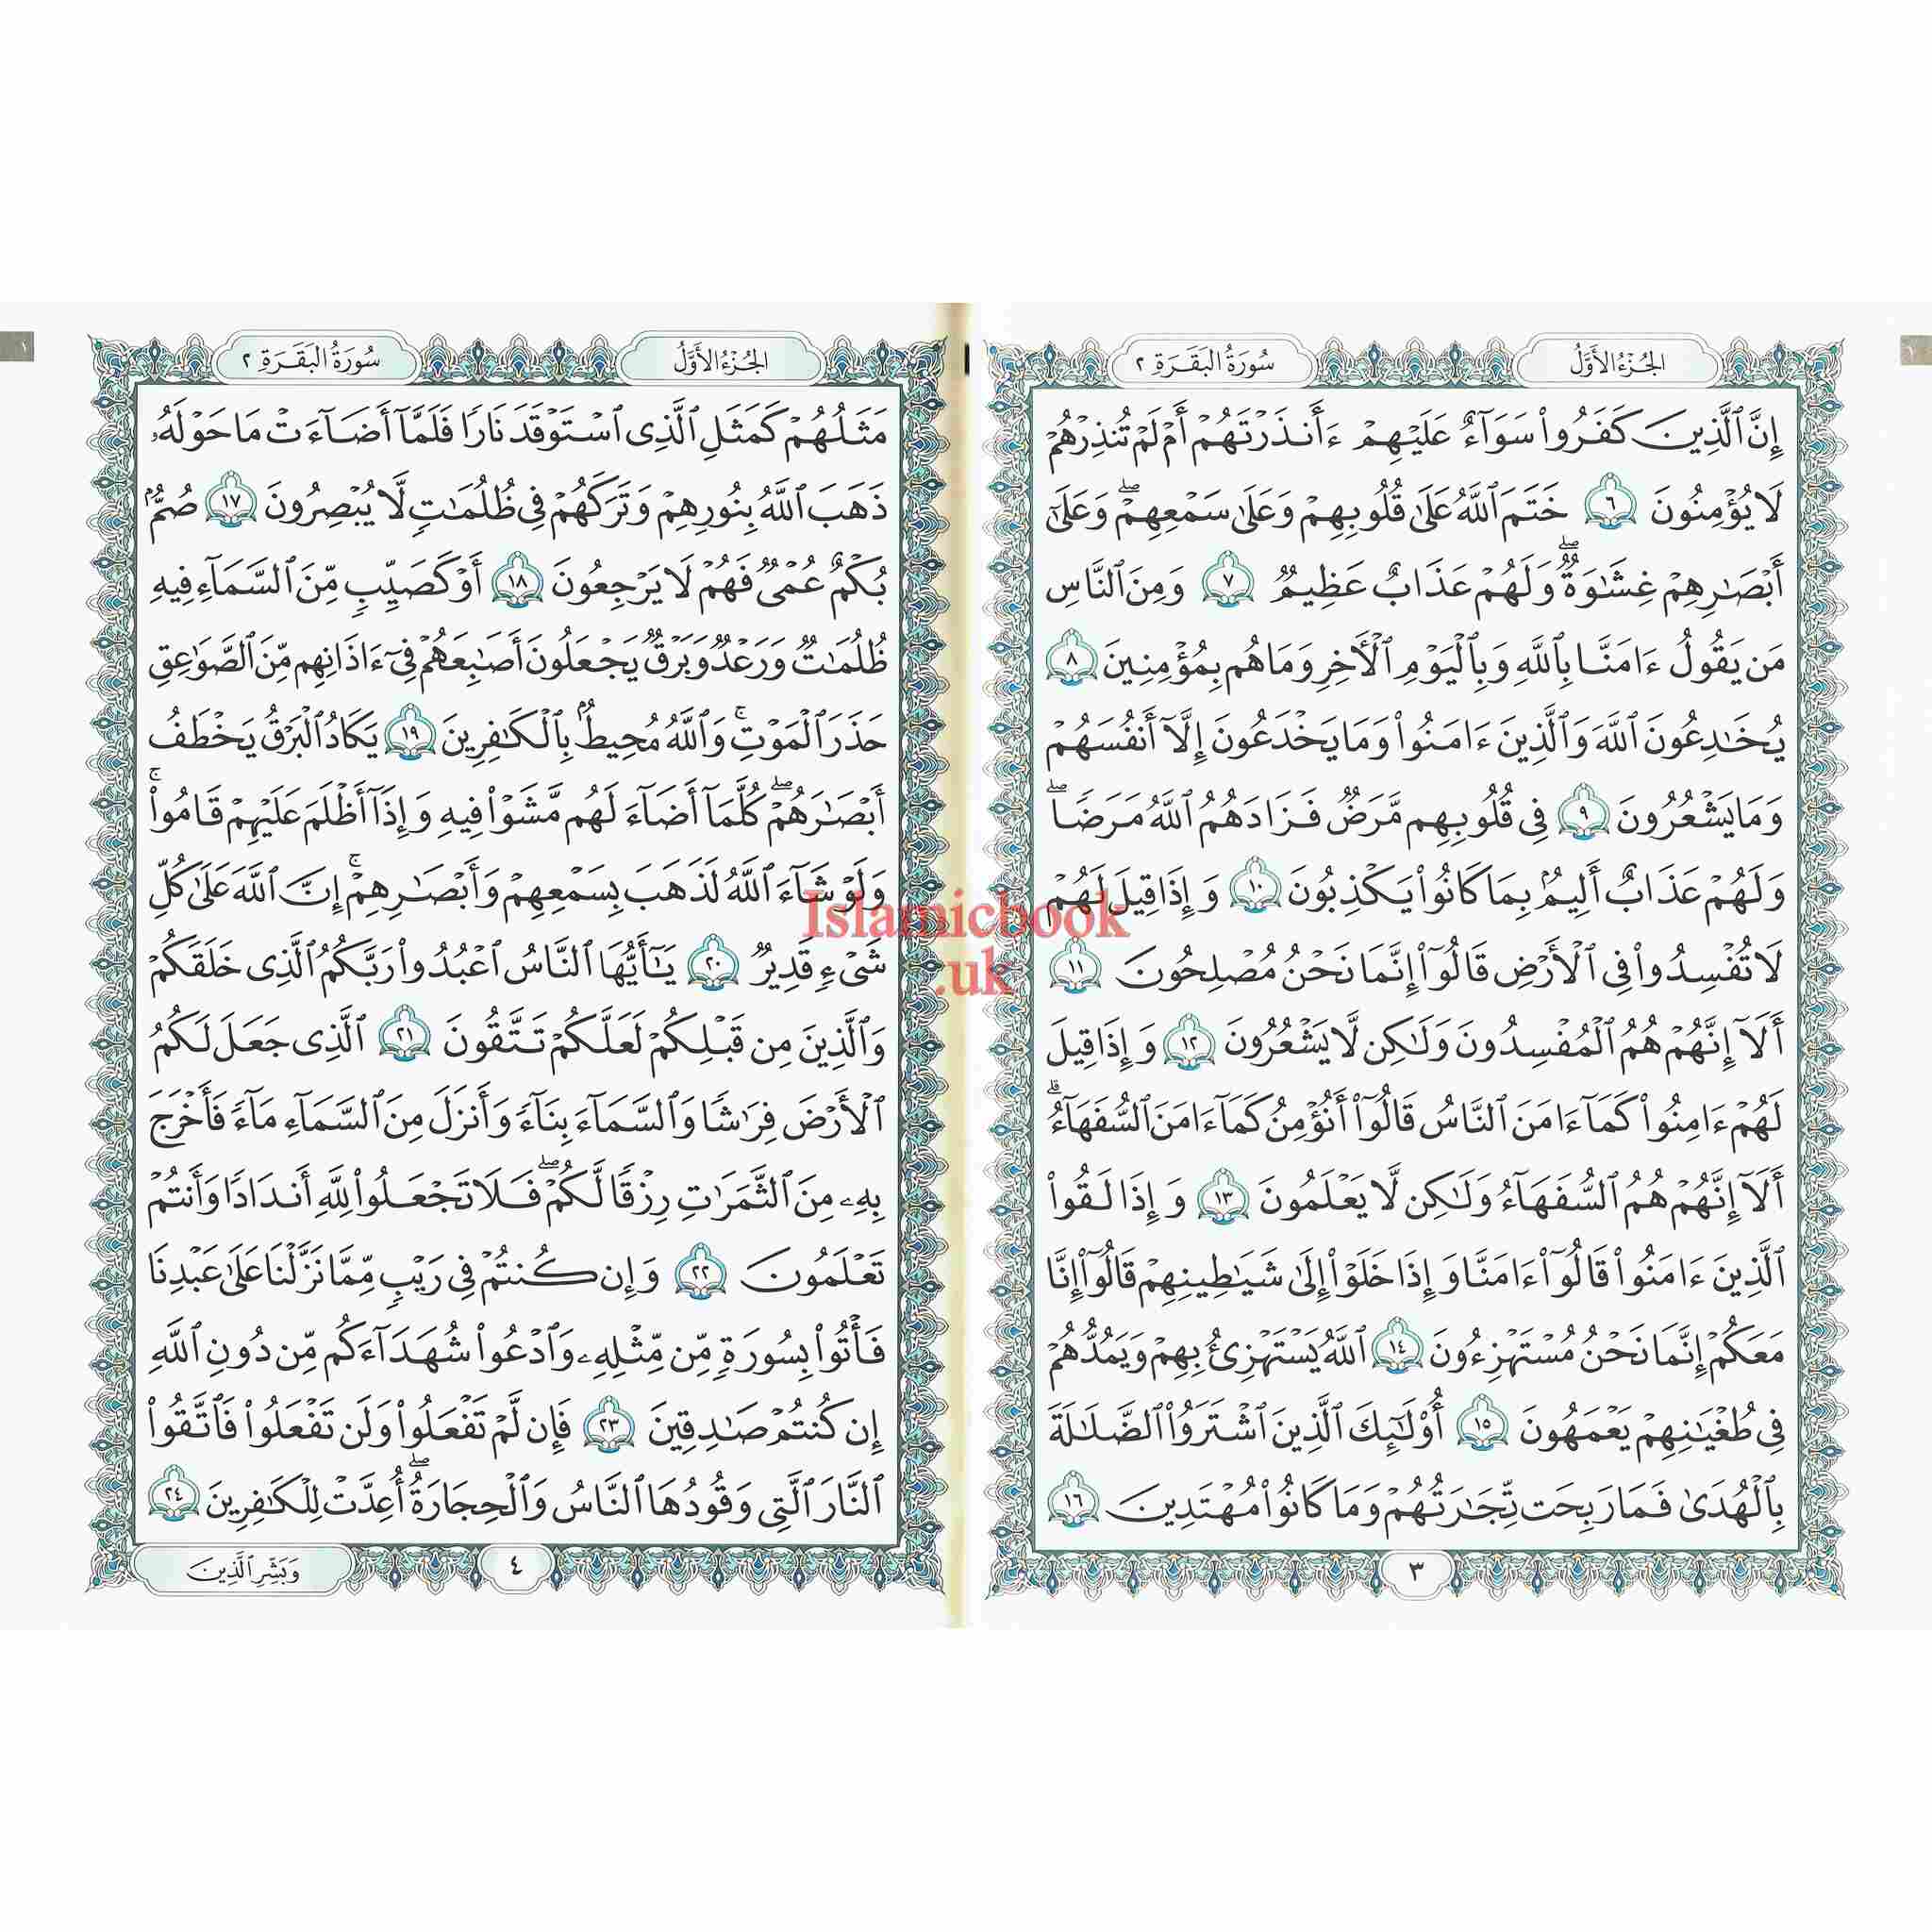 الجُزْءُ الأَوَّلُ
سُورَةُ البَقَرَةِ ٢
إِنَّ ٱلَّذِينَ كَفَرُوا۟ سَوَآءٌ عَلَيْهِمْ ءَأَنذَرْتَهُمْ أَمْ لَمْ تُنذِرْهُمْ
لَا يُؤْمِنُونَ ٦ خَتَمَ ٱللَّهُ عَلَىٰ قُلُوبِهِمْ وَعَلَىٰ سَمْعِهِمْ ۖ وَعَلَىٰٓ
أَبْصَـٰرِهِمْ غِشَـٰوَةٌ ۖ وَلَهُمْ عَذَابٌ عَظِيمٌ ٧ وَمِنَ ٱلنَّاسِ
مَن يَقُولُ ءَامَنَّا بِٱللَّهِ وَبِٱلْيَوْمِ ٱلْـَٔاخِرِ وَمَا هُم بِمُؤْمِنِينَ ٨
يُخَـٰدِعُونَ ٱللَّهَ وَٱلَّذِينَ ءَامَنُوا۟ وَمَا يَخْدَعُونَ إِلَّآ أَنفُسَهُمْ
وَمَا يَشْعُرُونَ ٩ فِى قُلُوبِهِم مَّرَضٌ فَزَادَهُمُ ٱللَّهُ مَرَضًا ۖ
وَلَهُمْ عَذَابٌ أَلِيمٌۢ بِمَا كَانُوا۟ يَكْذِبُونَ ١٠ وَإِذَا قِيلَ لَهُمْ
لَا تُفْسِدُوا۟ فِى ٱلْأَرْضِ قَالُوٓا۟ إِنَّمَا نَحْنُ مُصْلِحُونَ ١١
أَلَآ إِنَّهُمْ هُمُ ٱلْمُفْسِدُونَ وَلَـٰكِن لَّا يَشْعُرُونَ ١٢ وَإِذَا قِيلَ
لَهُمْ ءَامِنُوا۟ كَمَآ ءَامَنَ ٱلنَّاسُ قَالُوٓا۟ أَنُؤْمِنُ كَمَآ ءَامَنَ ٱلسُّفَهَآءُ ۗ
أَلَآ إِنَّهُمْ هُمُ ٱلسُّفَهَآءُ وَلَـٰكِن لَّا يَعْلَمُونَ ١٣ وَإِذَا لَقُوا۟
ٱلَّذِينَ ءَامَنُوا۟ قَالُوٓا۟ ءَامَنَّا وَإِذَا خَلَوْا۟ إِلَىٰ شَيَـٰطِينِهِمْ قَالُوٓا۟ إِنَّا
مَعَكُمْ إِنَّمَا نَحْنُ مُسْتَهْزِءُونَ ١٤ ٱللَّهُ يَسْتَهْزِئُ بِهِمْ وَيَمُدُّهُمْ
فِى طُغْيَـٰنِهِمْ يَعْمَهُونَ ١٥ أُو۟لَـٰٓئِكَ ٱلَّذِينَ ٱشْتَرَوُا۟ ٱلضَّلَـٰلَةَ
بِٱلْهُدَىٰ فَمَا رَبِحَت تِّجَـٰرَتُهُمْ وَمَا كَانُوا۟ مُهْتَدِينَ ١٦
٣
الجُزْءُ الأَوَّلُ
سُورَةُ البَقَرَةِ ٢
مَثَلُهُمْ كَمَثَلِ ٱلَّذِى ٱسْتَوْقَدَ نَارًا فَلَمَّآ أَضَآءَتْ مَا حَوْلَهُۥ
ذَهَبَ ٱللَّهُ بِنُورِهِمْ وَتَرَكَهُمْ فِى ظُلُمَـٰتٍ لَّا يُبْصِرُونَ ١٧ صُمٌّۢ
بُكْمٌ عُمْىٌ فَهُمْ لَا يَرْجِعُونَ ١٨ أَوْ كَصَيِّبٍ مِّنَ ٱلسَّمَآءِ فِيهِ
ظُلُمَـٰتٌ وَرَعْدٌ وَبَرْقٌ يَجْعَلُونَ أَصَـٰبِعَهُمْ فِىٓ ءَاذَانِهِم مِّنَ ٱلصَّوَٰعِقِ
حَذَرَ ٱلْمَوْتِ ۚ وَٱللَّهُ مُحِيطٌۢ بِٱلْكَـٰفِرِينَ ١٩ يَكَادُ ٱلْبَرْقُ يَخْطَفُ
أَبْصَـٰرَهُمْ ۖ كُلَّمَآ أَضَآءَ لَهُم مَّشَوْا۟ فِيهِ وَإِذَآ أَظْلَمَ عَلَيْهِمْ قَامُوا۟ ۚ
وَلَوْ شَآءَ ٱللَّهُ لَذَهَبَ بِسَمْعِهِمْ وَأَبْصَـٰرِهِمْ ۚ إِنَّ ٱللَّهَ عَلَىٰ كُلِّ
شَىْءٍ قَدِيرٌ ٢٠ يَـٰٓأَيُّهَا ٱلنَّاسُ ٱعْبُدُوا۟ رَبَّكُمُ ٱلَّذِى خَلَقَكُمْ
وَٱلَّذِينَ مِن قَبْلِكُمْ لَعَلَّكُمْ تَتَّقُونَ ٢١ ٱلَّذِى جَعَلَ لَكُمُ
ٱلْأَرْضَ فِرَٰشًا وَٱلسَّمَآءَ بِنَآءً وَأَنزَلَ مِنَ ٱلسَّمَآءِ مَآءً فَأَخْرَجَ
بِهِۦ مِنَ ٱلثَّمَرَٰتِ رِزْقًا لَّكُمْ ۖ فَلَا تَجْعَلُوا۟ لِلَّهِ أَندَادًا وَأَنتُمْ
تَعْلَمُونَ ٢٢ وَإِن كُنتُمْ فِى رَيْبٍ مِّمَّا نَزَّلْنَا عَلَىٰ عَبْدِنَا
فَأْتُوا۟ بِسُورَةٍ مِّن مِّثْلِهِۦ وَٱدْعُوا۟ شُهَدَآءَكُم مِّن دُونِ ٱللَّهِ
إِن كُنتُمْ صَـٰدِقِينَ ٢٣ فَإِن لَّمْ تَفْعَلُوا۟ وَلَن تَفْعَلُوا۟ فَٱتَّقُوا۟
ٱلنَّارَ ٱلَّتِى وَقُودُهَا ٱلنَّاسُ وَٱلْحِجَارَةُ ۖ أُعِدَّتْ لِلْكَـٰفِرِينَ ٢٤
٤
وَبَشِّرِ ٱلَّذِينَ
١
١
Islamicbook
.uk